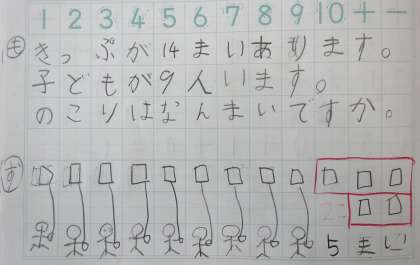 1 2 3 4 5 6 7 8 9 10 十 一
も きっぷが14まいあります。
子どもが9人います。
のこりはなんまいですか。
ず
5まい